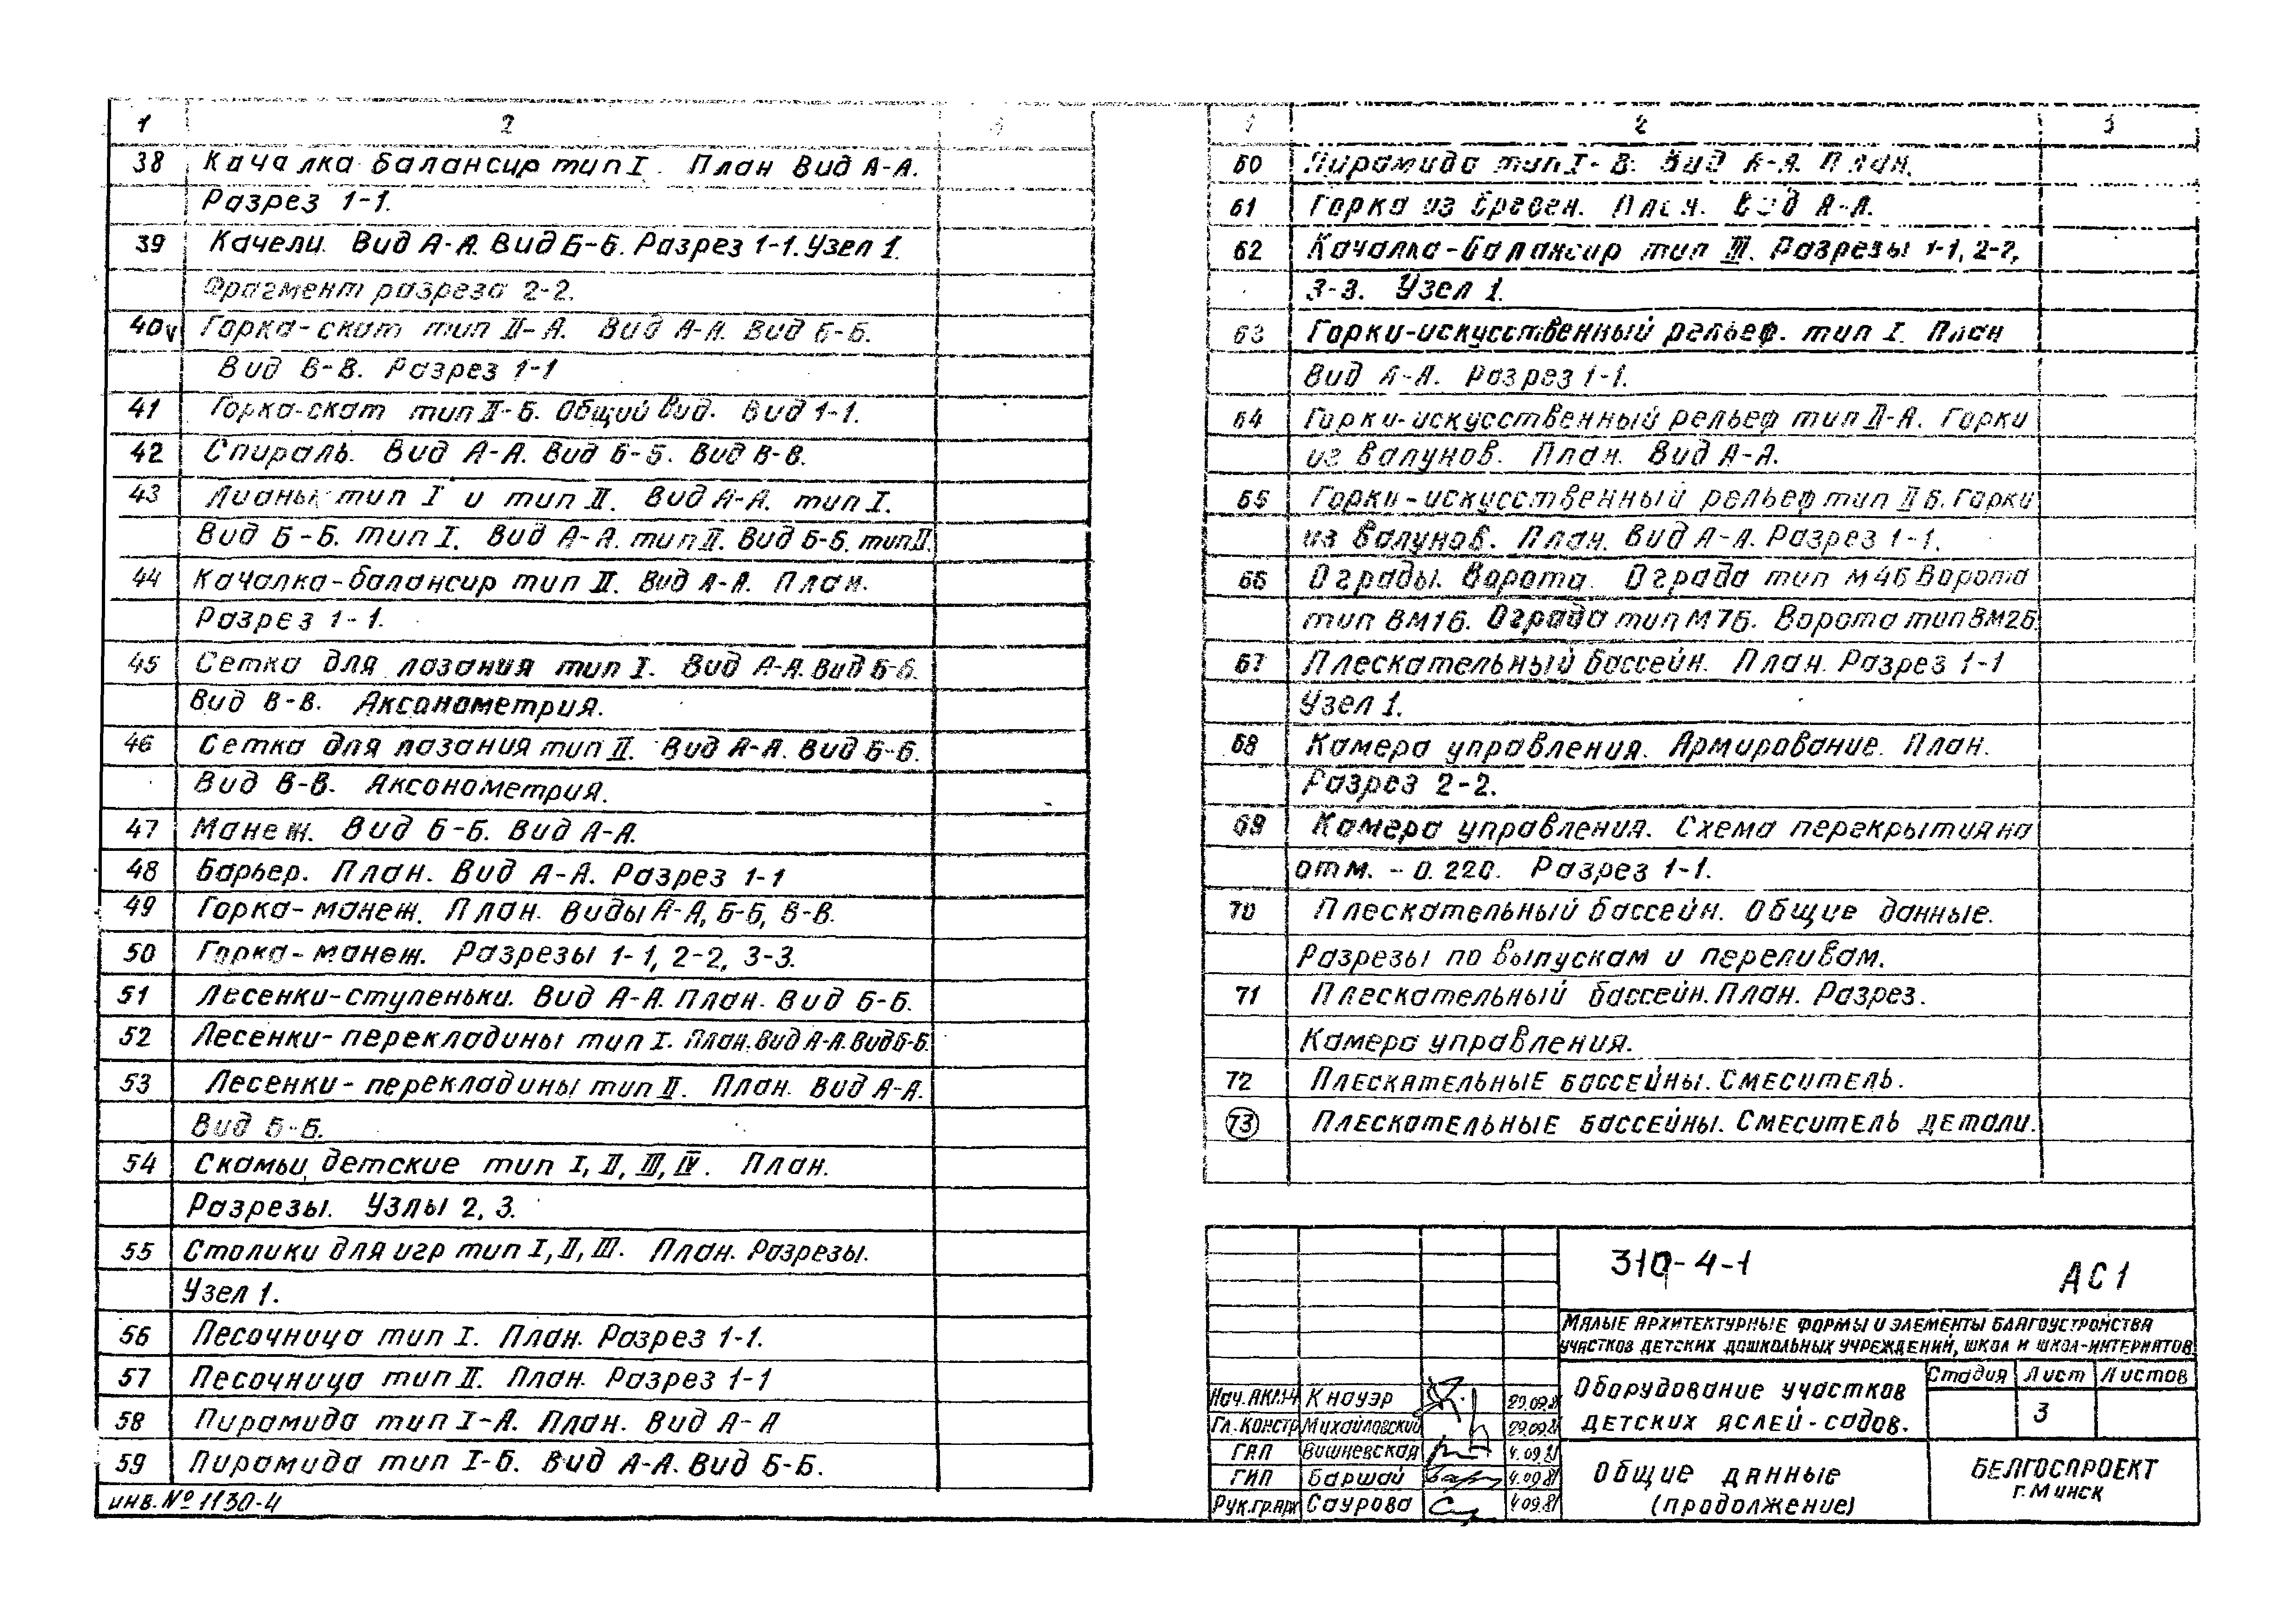 1 2 3
38 Качалка балансир тип I. План Вид А-А.
Разрез 1-1.
39 Качели. Вид А-А. Вид Б-Б. Разрез 1-1. Узел 1.
Фрагмент разреза 2-2.
40 Горка-скат тип II-А. Вид А-А. Вид Б-Б.
Вид В-В. Разрез 1-1
41 Горка-скат тип II-Б. Общий вид. Вид 1-1.
42 Спираль. Вид А-А. Вид Б-Б. Вид В-В.
43 Лианы тип I и тип II. Вид А-А. тип I.
Вид Б-Б. тип I. Вид А-А. тип II. Вид Б-Б. тип II.
44 Качалка-балансир тип II. Вид А-А. План.
Разрез 1-1.
45 Сетка для лазания тип I. Вид А-А. Вид Б-Б.
Вид В-В. Аксонометрия.
46 Сетка для лазания тип II. Вид А-А. Вид Б-Б.
Вид В-В. Аксонометрия.
47 Манеж. Вид Б-Б. Вид А-А.
48 Барьер. План. Вид А-А. Разрез 1-1
49 Горка-манеж. План. Виды А-А, Б-Б, В-В.
50 Горка-манеж. Разрезы 1-1, 2-2, 3-3.
51 Лесенки-ступеньки. Вид А-А. План. Вид Б-Б.
52 Лесенки-перекладины тип I. План. Вид А-А. Вид Б-Б.
53 Лесенки-перекладины тип II. План. Вид А-А.
Вид Б-Б.
54 Скамьи детские тип I, II, III, IV. План.
Разрезы. Узлы 2, 3.
55 Столики для игр тип I, II, III. План. Разрезы.
Узел 1.
56 Песочница тип I. План. Разрез 1-1.
57 Песочница тип II. План. Разрез 1-1
58 Пирамида тип I-А. План. Вид А-А
59 Пирамида тип I-Б. Вид А-А. Вид Б-Б.
инв. № 1130-4
1 2 3
60 Пирамида тип I-В. Вид А-А. План.
61 Горка из бревен. План. Вид А-А.
62 Качалка-балансир тип III. Разрезы 1-1, 2-2,
3-3. Узел 1.
63 Горки-искусственный рельеф. тип I. План
Вид А-А. Разрез 1-1.
64 Горки-искусственный рельеф тип II-А. Горки
из валунов. План. Вид А-А.
65 Горки-искусственный рельеф тип II Б. Горки
из валунов. План. Вид А-А. Разрез 1-1.
66 Ограды. Ворота. Ограда тип М4Б Ворота
тип ВМ1Б. Ограда тип М7Б. Ворота тип ВМ2Б
67 Плескательный бассейн. План. Разрез 1-1
Узел 1.
68 Камера управления. Армирование. План.
Разрез 2-2.
69 Камера управления. Схема перекрытия на
отм. - 0.220. Разрез 1-1.
70 Плескательный бассейн. Общие данные.
Разрезы по выпускам и переливам.
71 Плескательный бассейн. План. Разрез.
Камера управления.
72 Плескательные бассейны. Смеситель.
73 Плескательные бассейны. Смеситель детали.
310-4-1 АС1
Малые архитектурные формы и элементы благоустройства
участков детских дошкольных учреждений, школ и школ-интернатов
Оборудование участков
детских яслей-садов.
Стадия Лист Листов
3
Нач. АКМ-4 Кнауэр 29.09.81
Гл. констр Михайловский 29.09.81
ГАП Вишневская 4.09.81
ГИП Баршай 4.09.81
Рук. гр. арх Саурова 4.09.81
Общие данные
(продолжение)
БЕЛГОСПРОЕКТ
г. Минск